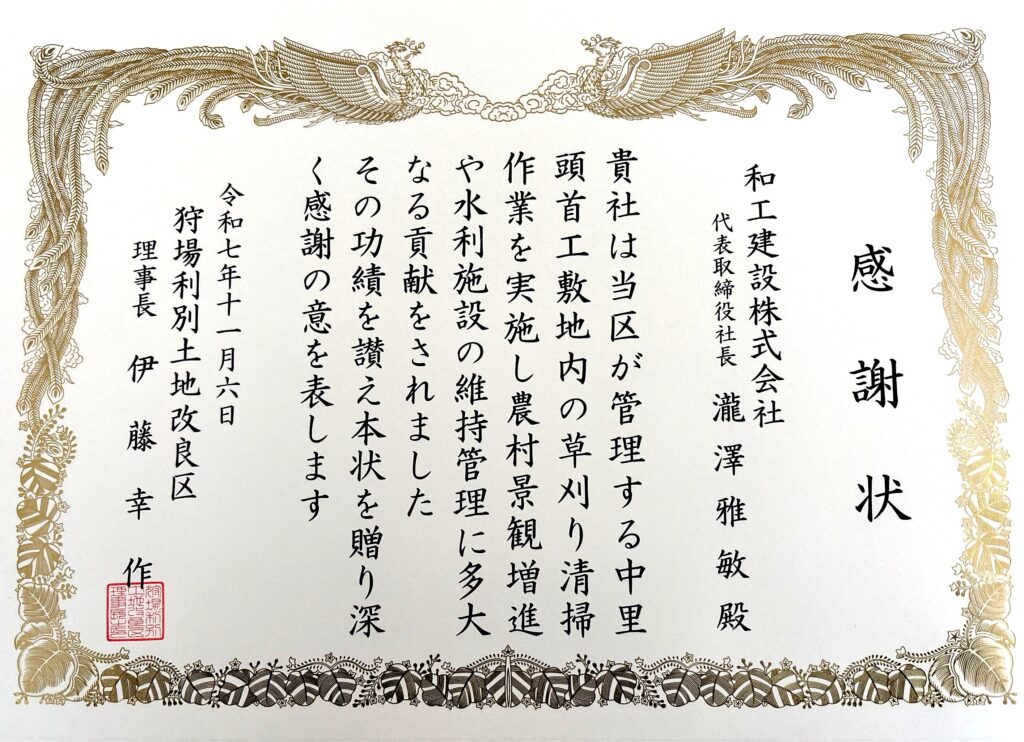 感謝状
和工建設株式会社
代表取締役社長 瀧澤雅敏殿
貴社は当区が管理する中里
頭首工敷地内の草刈り清掃
作業を実施し農村景観増進
や水利施設の維持管理に多大
なる貢献をされました
その功績を讃え本状を贈り深
く感謝の意を表します
令和七年十一月六日
狩場利別土地改良区
理事長 伊藤幸作